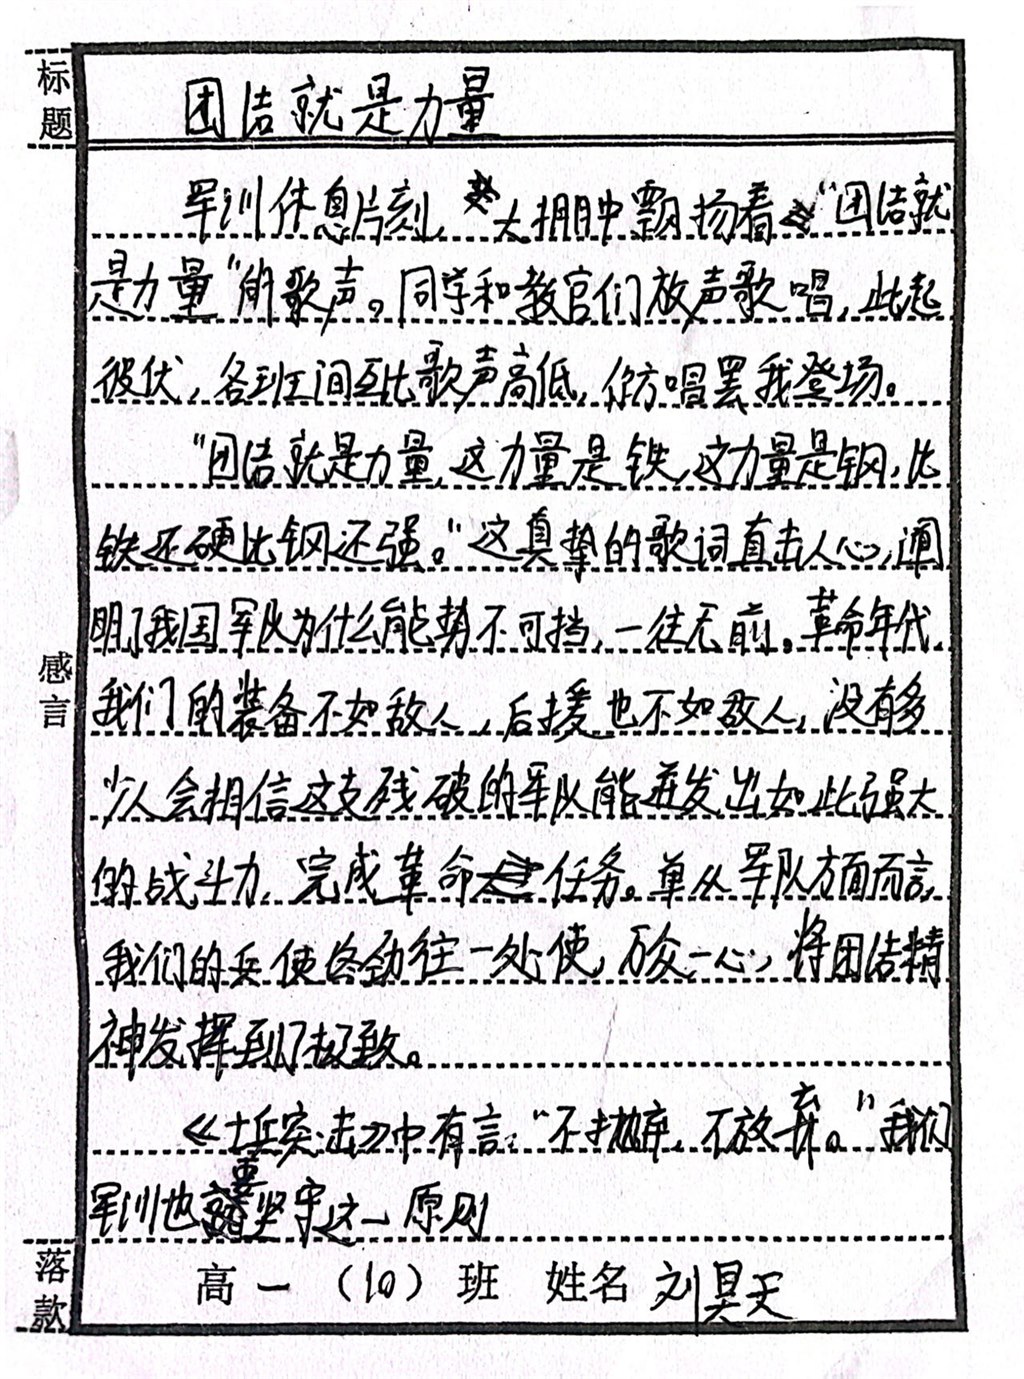 标题
团结就是力量
军训休息片刻，大棚中飘扬着“团结就
是力量”的歌声。同学和教官们放声歌唱，此起
彼伏，各班互间互比歌声高低，你方唱罢我登场。
“团结就是力量，这力量是铁，这力量是钢，比
铁还硬比钢还强。”这真挚的歌词直击人心，阐
明了我国军队为什么能势不可挡，一往无前。革命年代，
我们的装备不如敌人，后援也不如敌人，没有多
少人会相信这支残破的军队能迸发出如此强大
的战斗力，完成革命任务。单从军队方面而言，
我们的兵使名劲往一处使，万众一心，将团结精
神发挥到了极致。
《士兵突击》中有言：“不抛弃，不放弃。”我们
军训也要坚守这一原则
感言
落款
高一（10）班 姓名 刘昊天